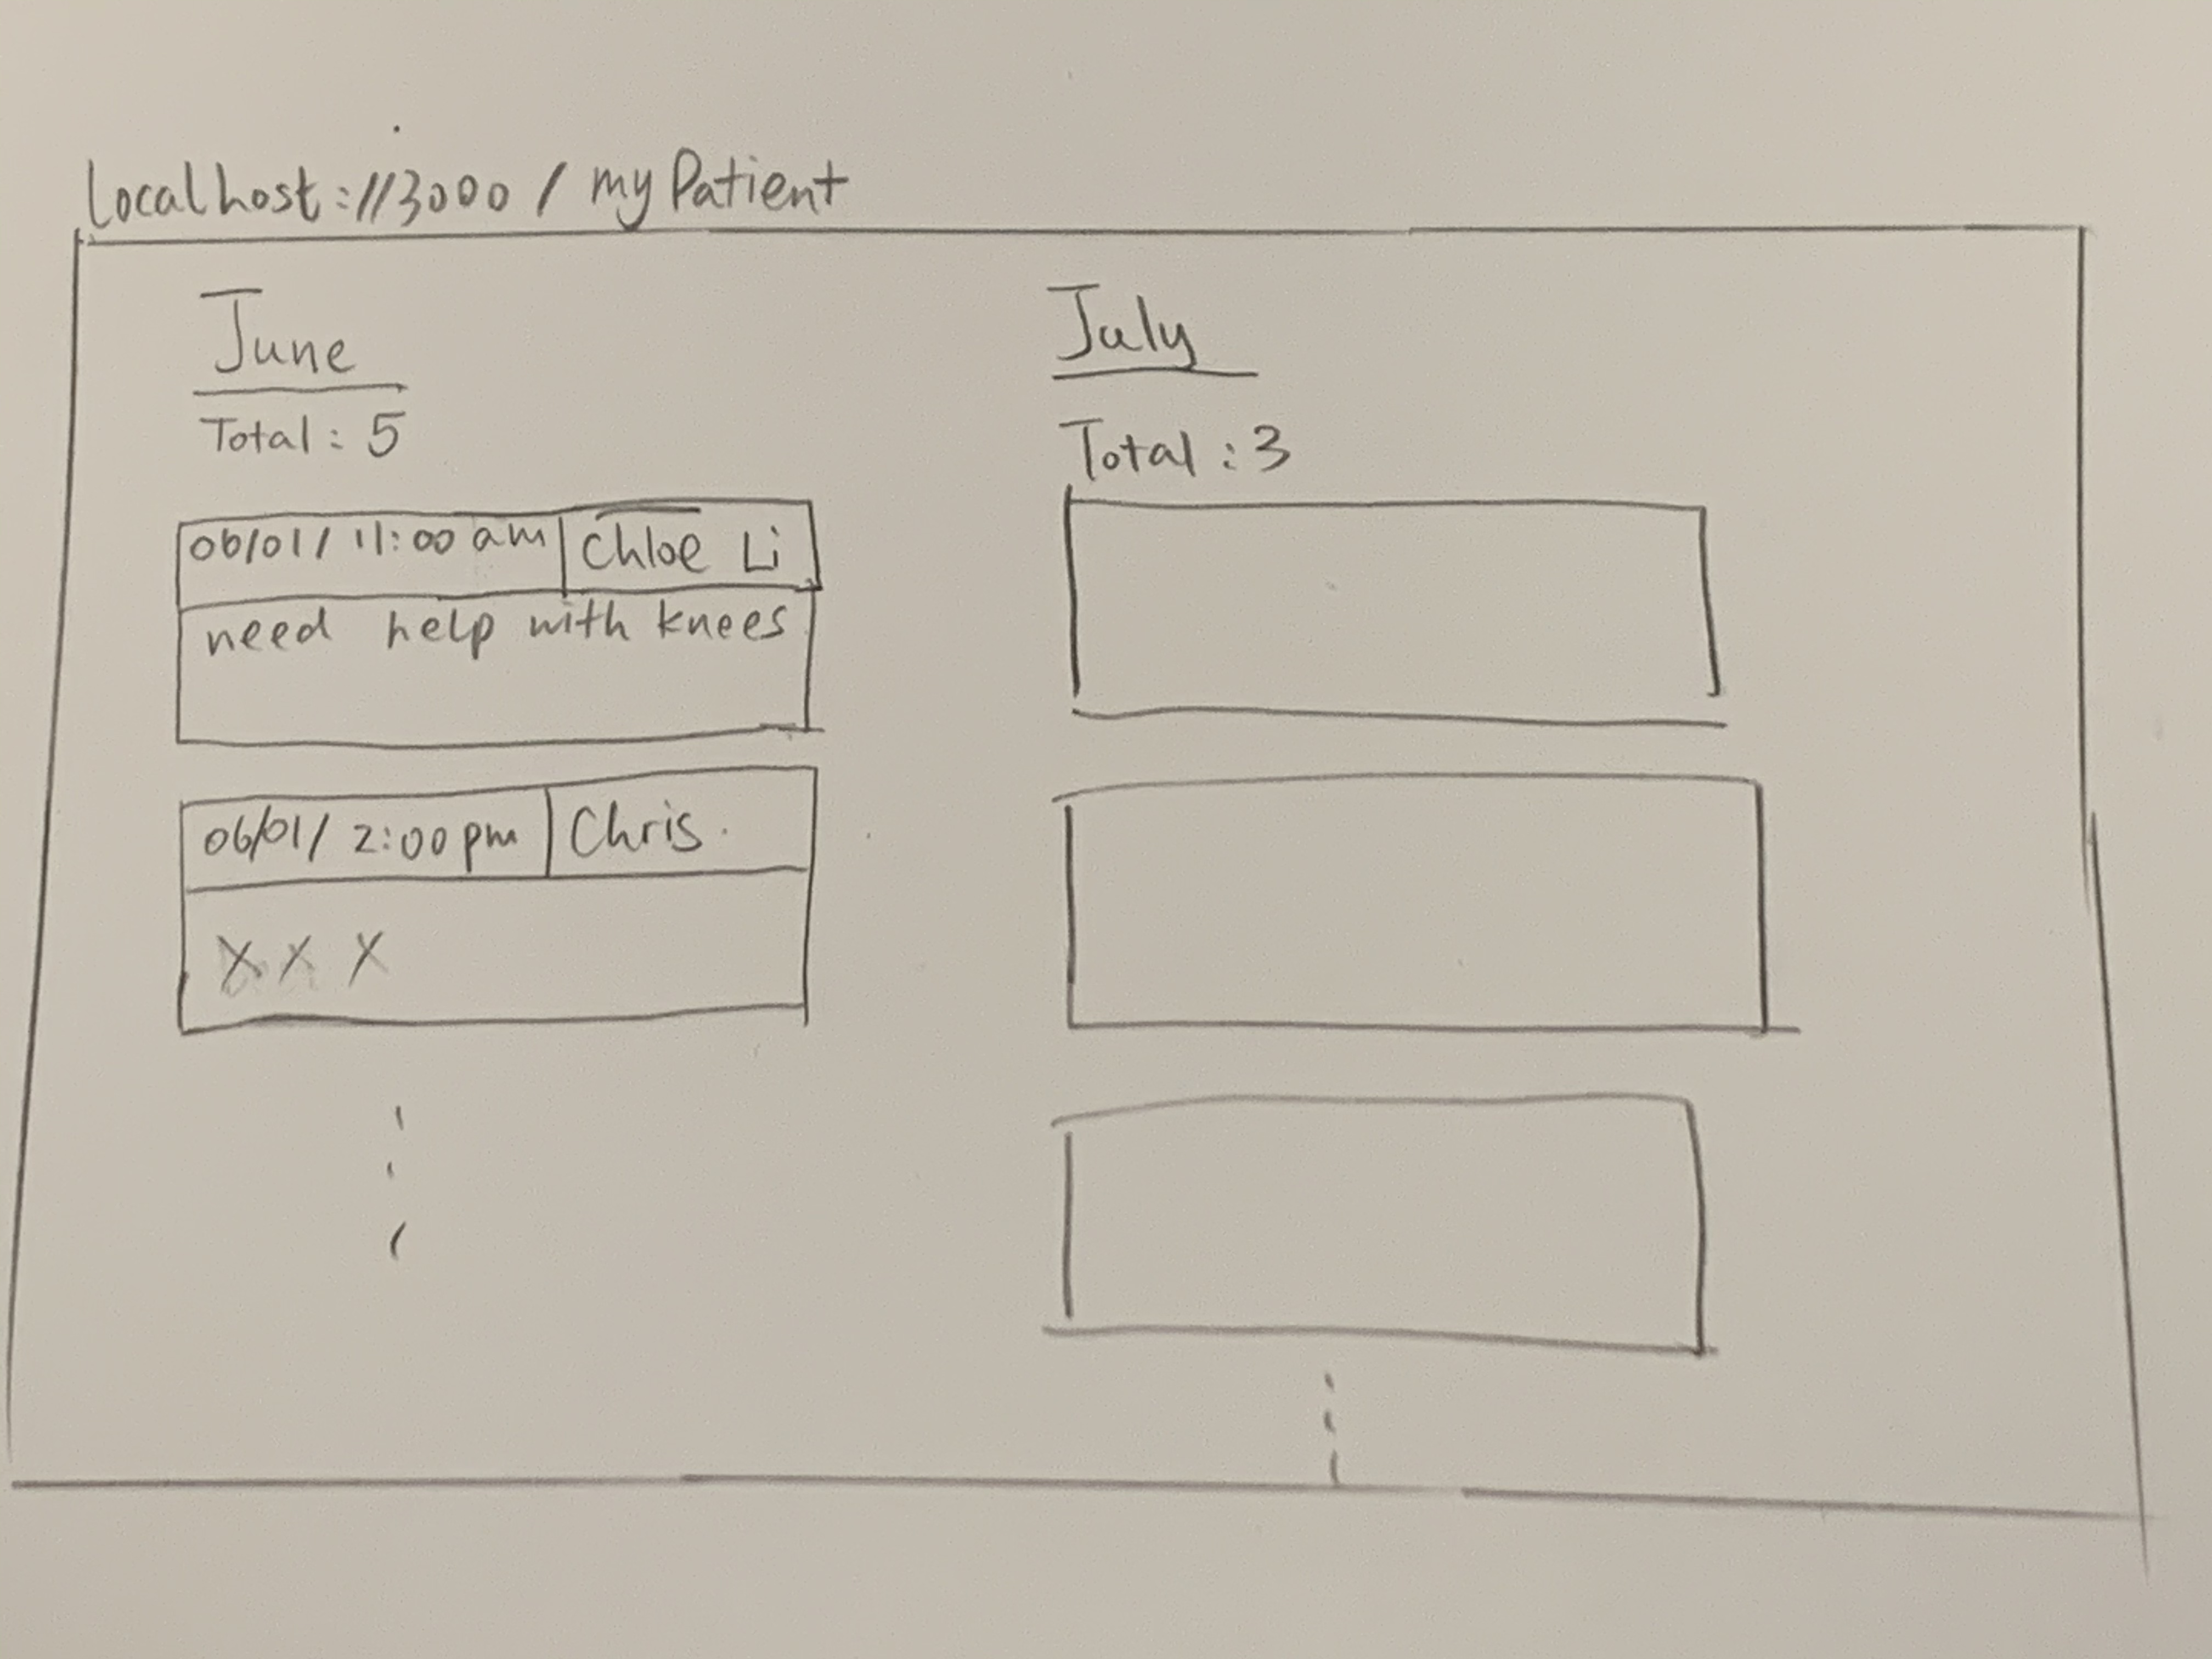 localhost://3000/myPatient
June
Total: 5
06/01/ 11:00 am Chloe Li
need help with knees
06/01/ 2:00 pm Chris.
X X X
July
Total: 3